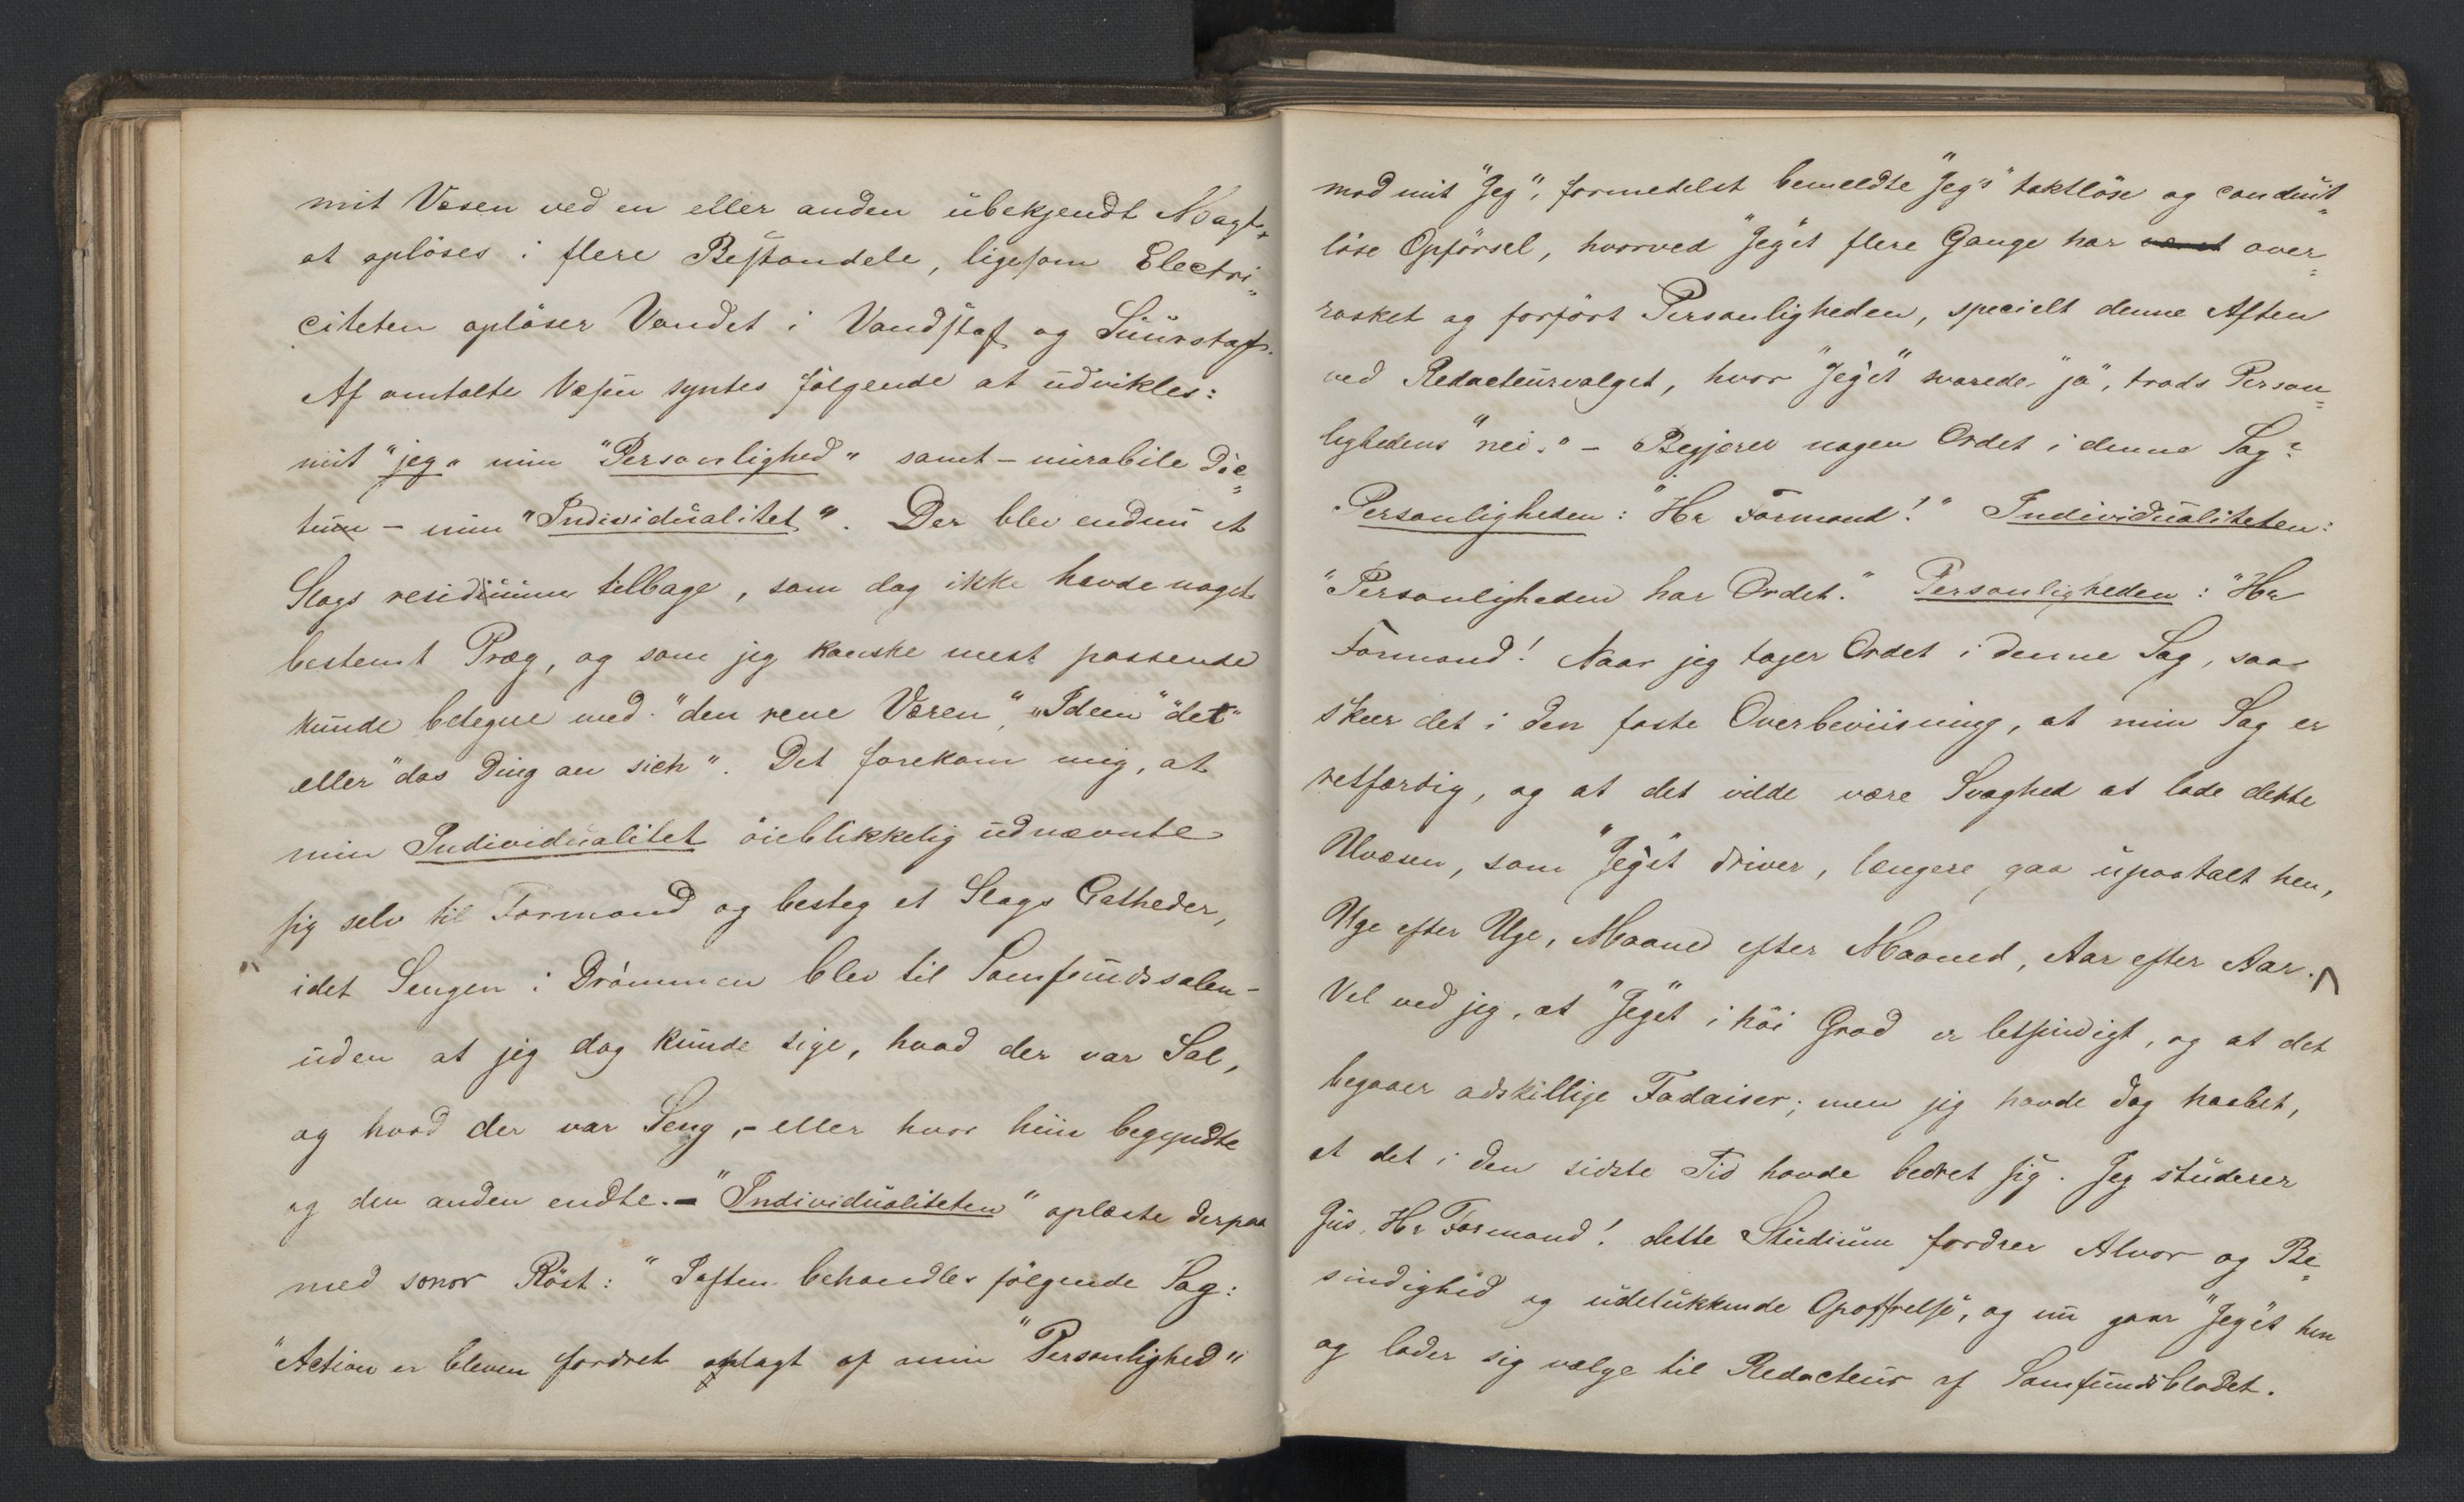 mit Væsen ved en eller anden ubekjendt Magt
at oplöses i flere Bestandele, ligesom Electri-
citeten oplöser Vandet i Vandstof og Suurstof.
Af omtalte Væsen syntes fölgende at udvikles:
mit "jeg" min "Personlighed" samt - mirabile dic-
tum - min "Individualitet". Der blev endnu et
Slags residuum tilbage, som dog ikke havde noget
bestemt Præg, og som jeg kanske mest passende
kunde betegne med "den rene Væren", "Ideen" "det"
eller "das Ding an sich". Det forekom mig, at
min Individualitet öieblikkelig udnævnte
sig selv til Formand og besteg et Slags Catheder,
idet Sengen i Drömmen blev til Samfundssalen -
uden at jeg dog kunde sige, hvad der var Sal,
og hvad der var Seng, - eller hvor hiin begyndte
og den anden endte. - "Individualiteten" oplæste derpaa
med sonor Röst: "Iaften behandles fölgende Sag:
"Action er bleven fordret anlagt af min "Personlighed"
mod mit "Jeg", formedelst bemeldte "Jeg's" taktlöse og conduit-
löse Opförsel, hvorved "Jeg'et flere Gange har været over-
rasket og forfört Personligheden, specielt denne Aften
ved Redacteurvalget, hvor "Jeg'et" svarede "ja", trods Person-
lighedens "nei." - Begjærer nogen Ordet i denne Sag?
Personligheden: "Hr Formand!" Individualiteten:
"Personligheden har Ordet." Personligheden: "Hr
Formand! Naar jeg tager Ordet i denne Sag, saa
skeer det i den faste Overbeviisning, at min Sag er
retfærdig, og at det vilde være Svaghed at lade dette
Uvæsen, som "Jeg'et driver, længere gaa upaatalt hen,
Uge efter Uge, Maaned efter Maaned, Aar efter Aar.
Vel ved jeg, at "Jeg'et i höi Grad er letsindigt, og at det
begaaer adskillige Fadaiser; men jeg havde dog haabet,
at det i den sidste Tid havde bedret sig. Jeg studerer
Jus, Hr Formand! dette Studium fordrer Alvor og Be-
sindighed og udelukkende Opoffrelse, og nu gaar "Jeg'et hen
og lader sig vælge til Redacteur af Samfundsbladet.